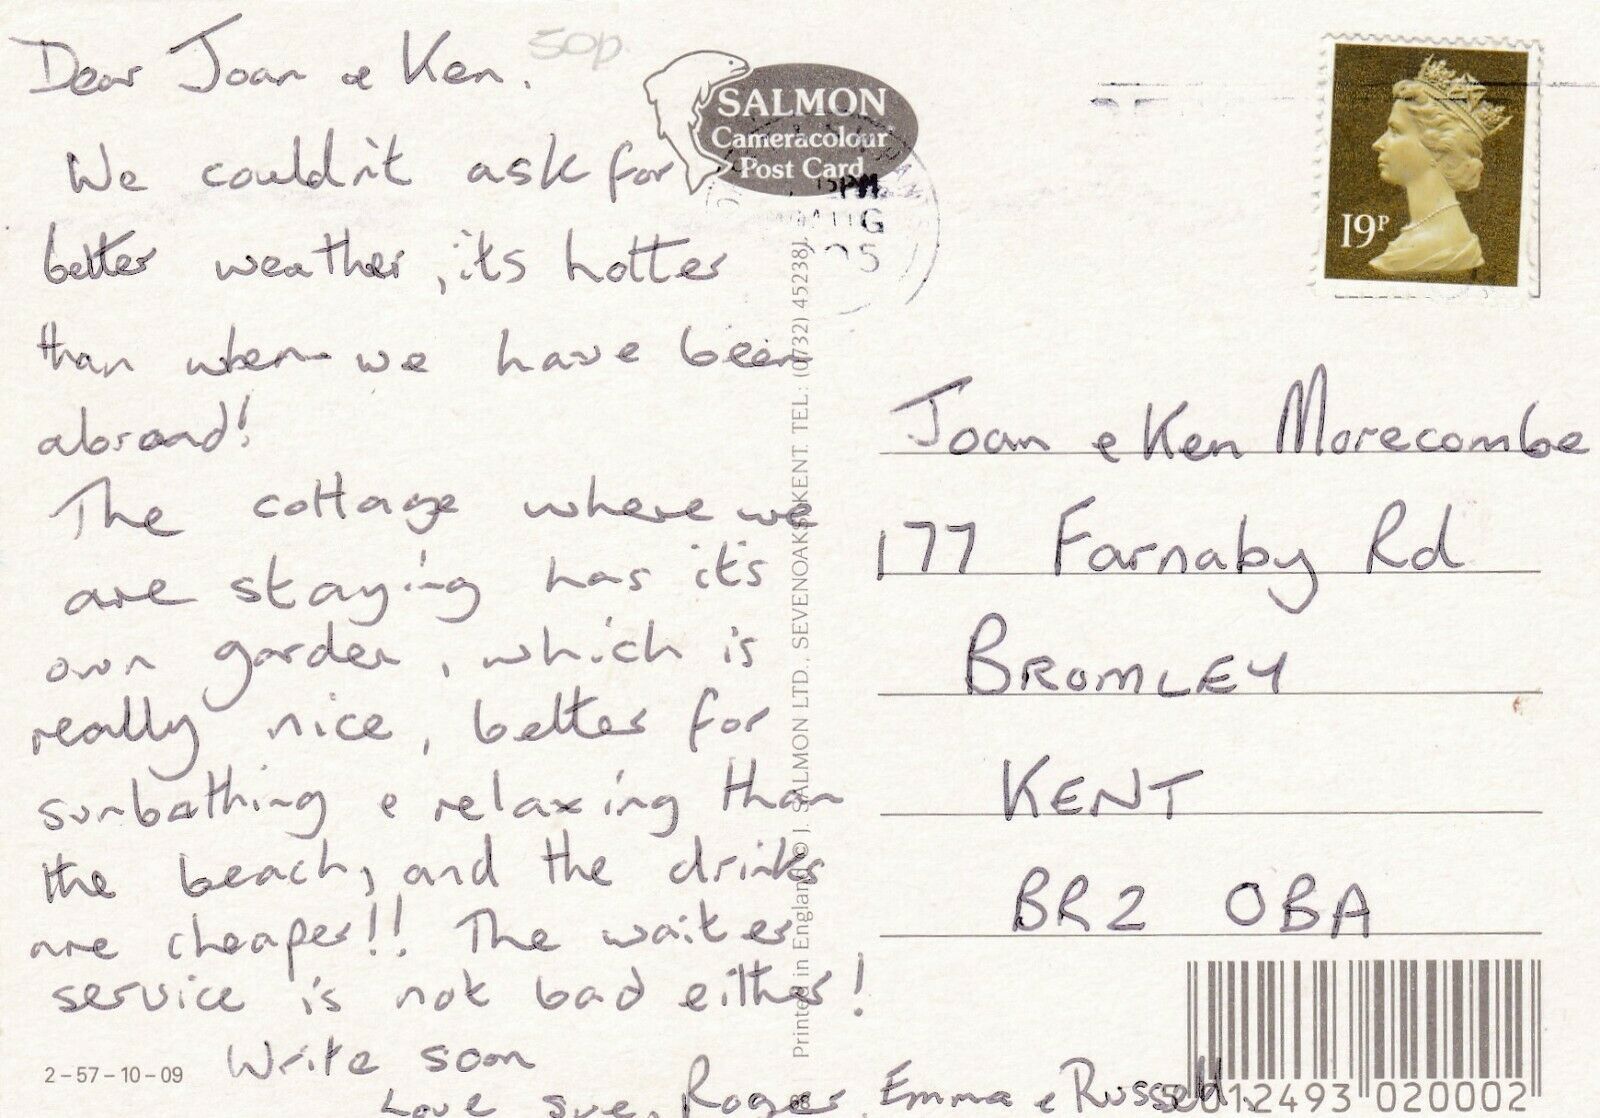 Dear Joan & Ken.
50p
We couldn't ask for
better weather, its hotter
than when we have been
abroad!
The cottage where we
are staying has its
own garden, which is
really nice, better for
sunbathing & relaxing than
the beach, and the drinks
are cheaper!! The waiter
service is not bad either!
Write soon
Love Sue, Roger, Emma & Russell.
2-57-10-09
SALMON
Cameracolour
Post Card
PM
AUG
Printed in England © J. SALMON LTD., SEVENOAKS, KENT. TEL: (0732) 452381.
19P
Joan & Ken Morecombe
177 Farnaby Rd
BROMLEY
KENT
BR2 0BA
012493 020002